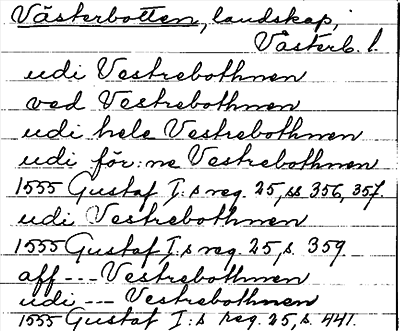 Västerbotten, landskap,
Västerb. l.
udi Vestrebothnen
ved Vestrebothnen
udi hele Vestrebothnen
udi för:ne Vestrebothnen
1555 Gustaf I:s reg. 25, ss 356, 357.
udi Vestrebothnen
1555 Gustaf I:s reg. 25, s. 359.
aff --- Vestrebothnen
udi --- Vestrebothnen
1555 Gustaf I:s reg. 25, s. 441.